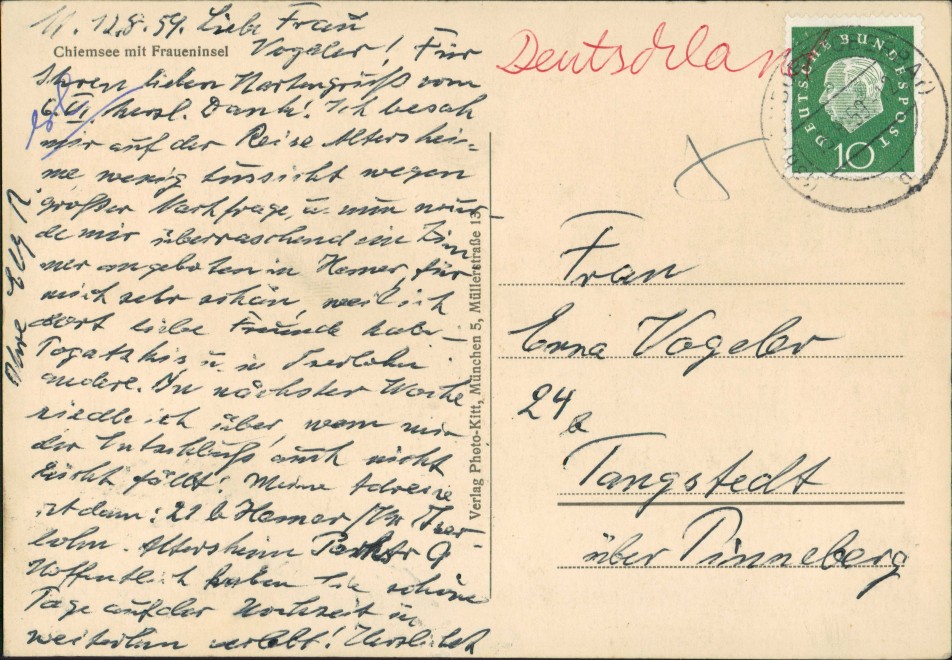 M. 12.8.59. Liebe Frau
Chiemsee mit Fraueninsel
Vogeler! Für
Ihren lieben Kartengruß vom
6.VI. herzl. Dank! Ich besah
mir auf der Reise Altershei-
me wenig Aussicht wegen
großer Nachfrage, u. nun wur-
de mir überraschend ein Zim
mer angeboten in Hemer, für
mich sehr schön, weil ich
dort liebe Freunde habe
u. in Iserlohn
andere. In nächster Woche
siedle ich über, wenn mir
der Entschluß auch nicht
leicht fällt! Meine Adresse
ist dann: 21 b Hemer /Kr Iser-
lohn. Altersheim Parkstr 9
Hoffentlich haben Sie schöne
Tage auf der Hochzeit u
weiterhin verlebt! Herzlichst
Ihre Elly R.
Verlag Photo-Kitt, München 5, Müllerstraße 13
Deutschland
DEUTSCHE BUNDESPOST
10
Frau
Erna Vogeler
24
b
Tangstedt
über Pinneberg